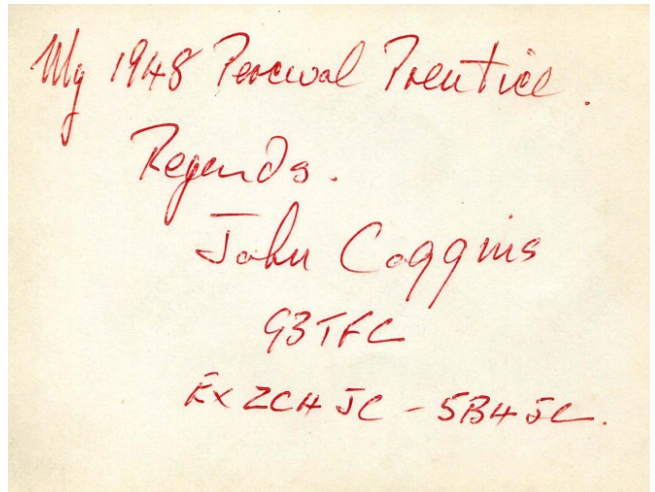 My 1948 Percival Prentice.
Regards.
John Coggins
G3TFC
Ex ZC4JC - 5B4JC.